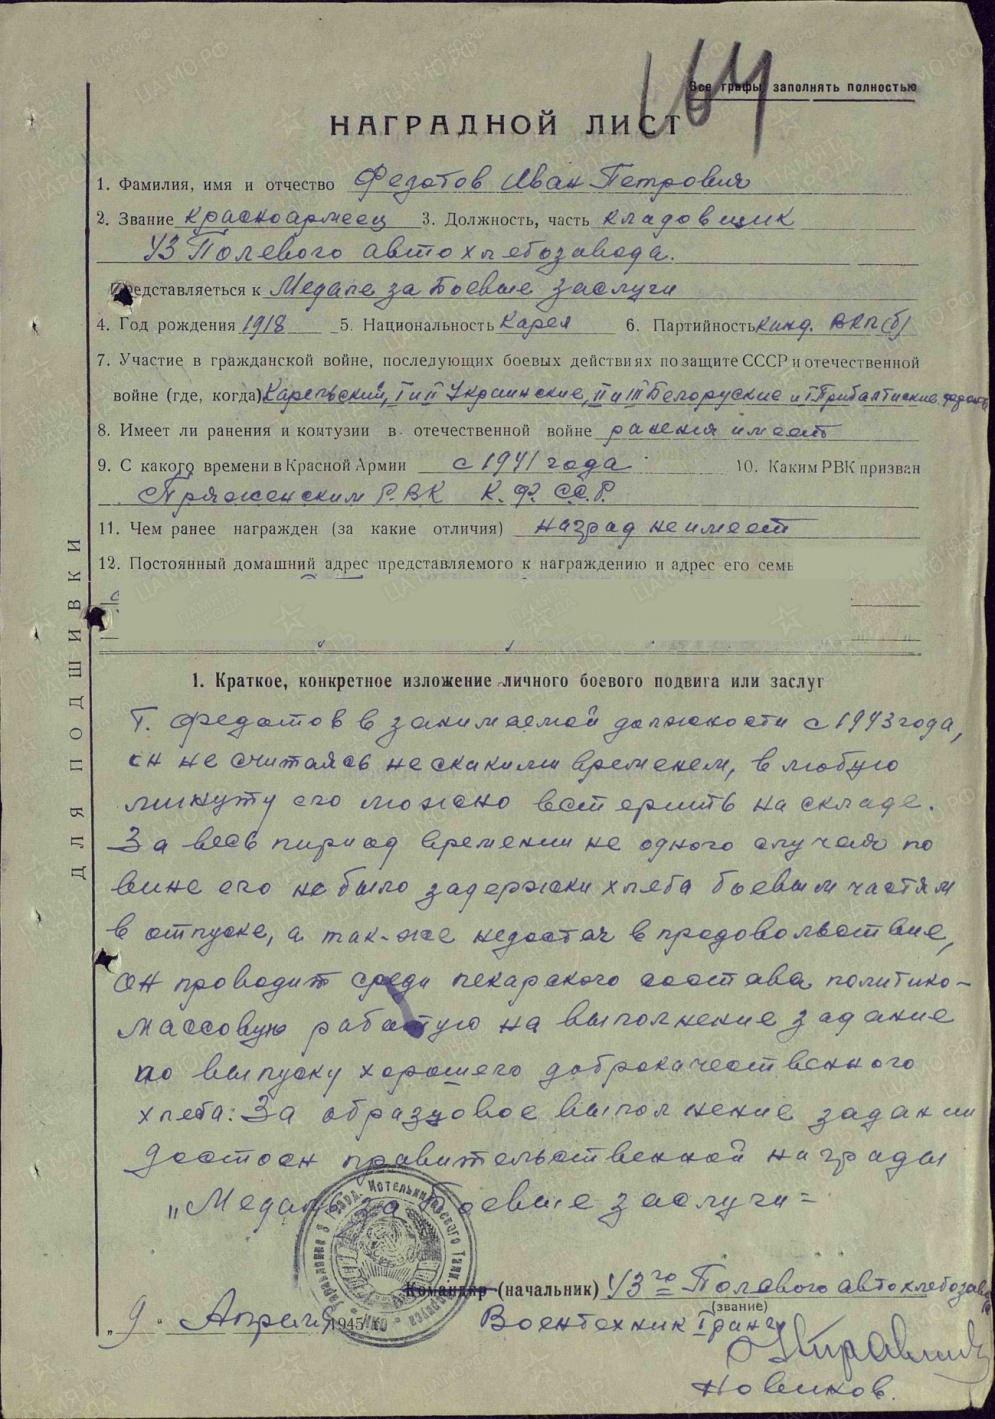 164
Все графы заполнять полностью
НАГРАДНОЙ ЛИСТ
1. Фамилия, имя и отчество Федотов Иван Петрович
2. Звание красноармеец 3. Должность, часть кладовщик
43 Полевого автохлебозавода.
Представляеться к Медале за Боевые заслуги
4. Год рождения 1918 5. Национальность Карел 6. Партийность Канд. ВКП(б)
7. Участие в гражданской войне, последующих боевых действиях по защите СССР и отечественной
войне (где, когда) Карельский, I и II Украинские, II и III Белоруские и I Прибалтиские
8. Имеет ли ранения и контузии в отечественной войне ранения имеет
9. С какого времени в Красной Армии с 1941 года 10. Каким РВК призван
Пряженским РВК К.Ф.ССР.
11. Чем ранее награжден (за какие отличия) наград не имеет
12. Постоянный домашний адрес представляемого к награждению и адрес его семь
ДЛЯ ПОДШИВКИ
1. Краткое, конкретное изложение личного боевого подвига или заслуг
Т. Федотов в занимаемой должности с 1943 года,
он не считаясь не скаким временем, в любую
минуту его можно встерить на складе.
За весь пириод времени не одного случая по
вине его не было задержки хлеба боевым частям
в отпуске, а так-же недостач в продовольствие,
он проводит среди пекарского состава политико-
массовую работую на выполнение задание
по выпуску хорошего доброкачественного
хлеба. За образцовое выполнение задании
достоен правительственной награды
"Медаль за Боевые заслуги"
Командир (начальник) 43го Полевого автохлебозавода
(звание)
"9" Апреля 1945 г. Воентехник I ранга
Новиков.